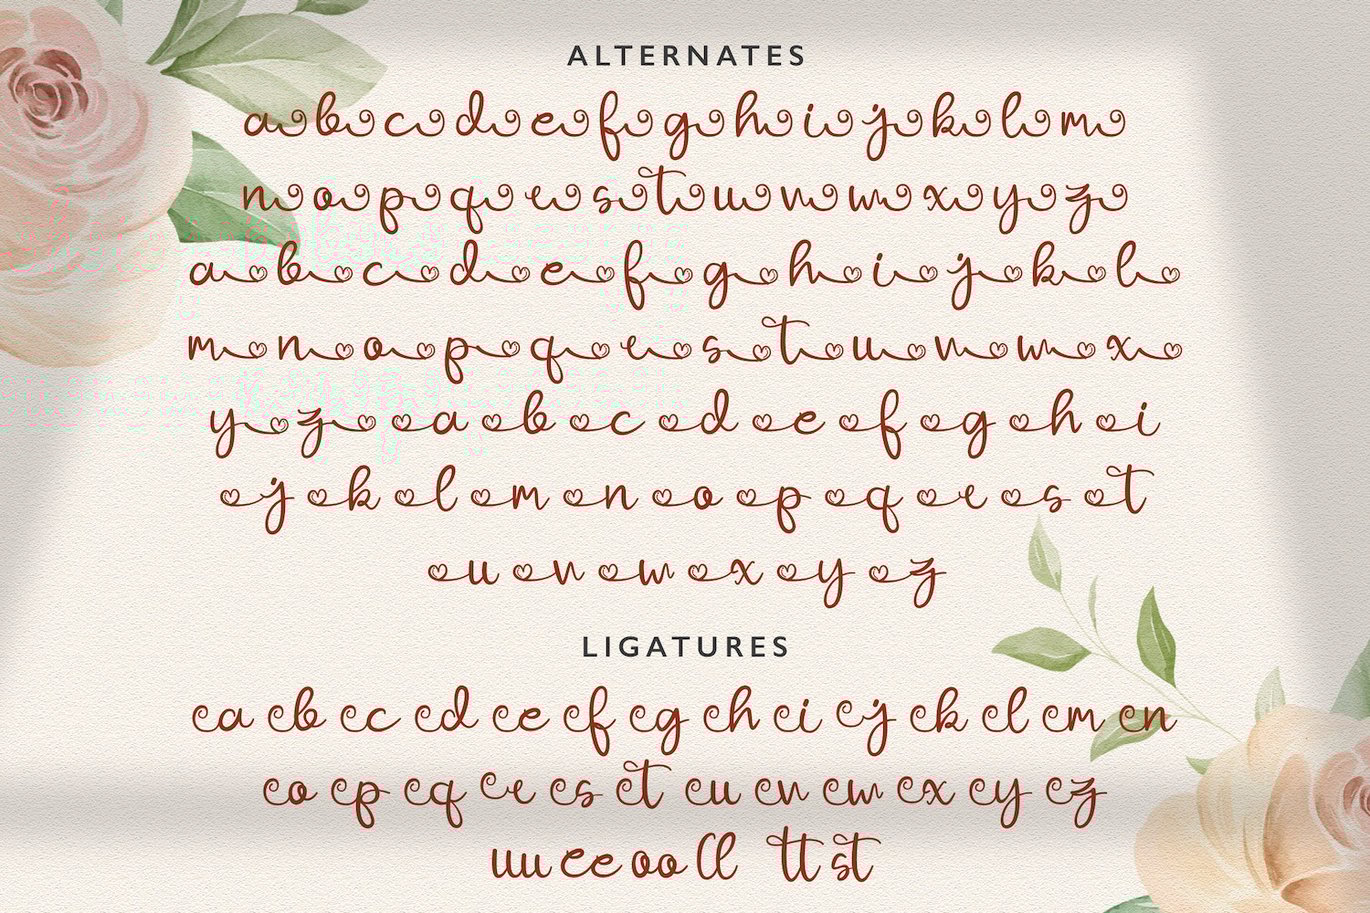 ALTERNATES
a b c d e f g h i j k l m
n o p q r s t u v w x y z
a b c d e f g h i j k l
m n o p q r s t u v w x
y z a b c d e f g h i
j k l m n o p q r s t
u v w x y z
LIGATURES
a b c d e f g h i j k l m n
o p q r s t u v w x y z
uu ee oo ll tt st